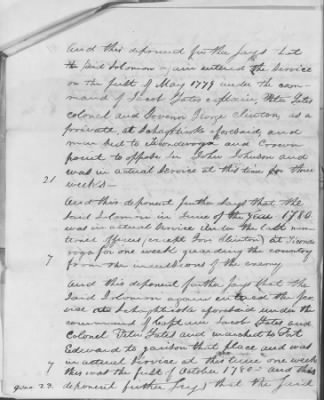 And this deponent further says that
the said Solomon again entered the service
on the first of May 1779 under the com-
mand of Jacob Yates captain, Peter Yates
colonel and Govenor George Clinton, as a
private, at Schaghticoke aforesaid, and
marched to Ticonderoga and Crown
point to oppose Sir John Johnson and
was in actual service at this time for three
21 weeks—
And this deponent further says that the
said Solomon in June of the year 1780
was in actual service under the last men-
tioned officers (except Gov Clinton) at Ticonde
roga for one week guarding the country
7 from the incursions of the enemy
And this deponent further says that the
said Solomon again entered the ser
vice at Schaghticoke aforesaid under the
command of Captain Jacob Yates and
Colonel Peter Yates and marched to Fort
Edward to garison that place and was
7 in actual service at this time one week
this was the first of October 1780— And this
deponent further says that the said